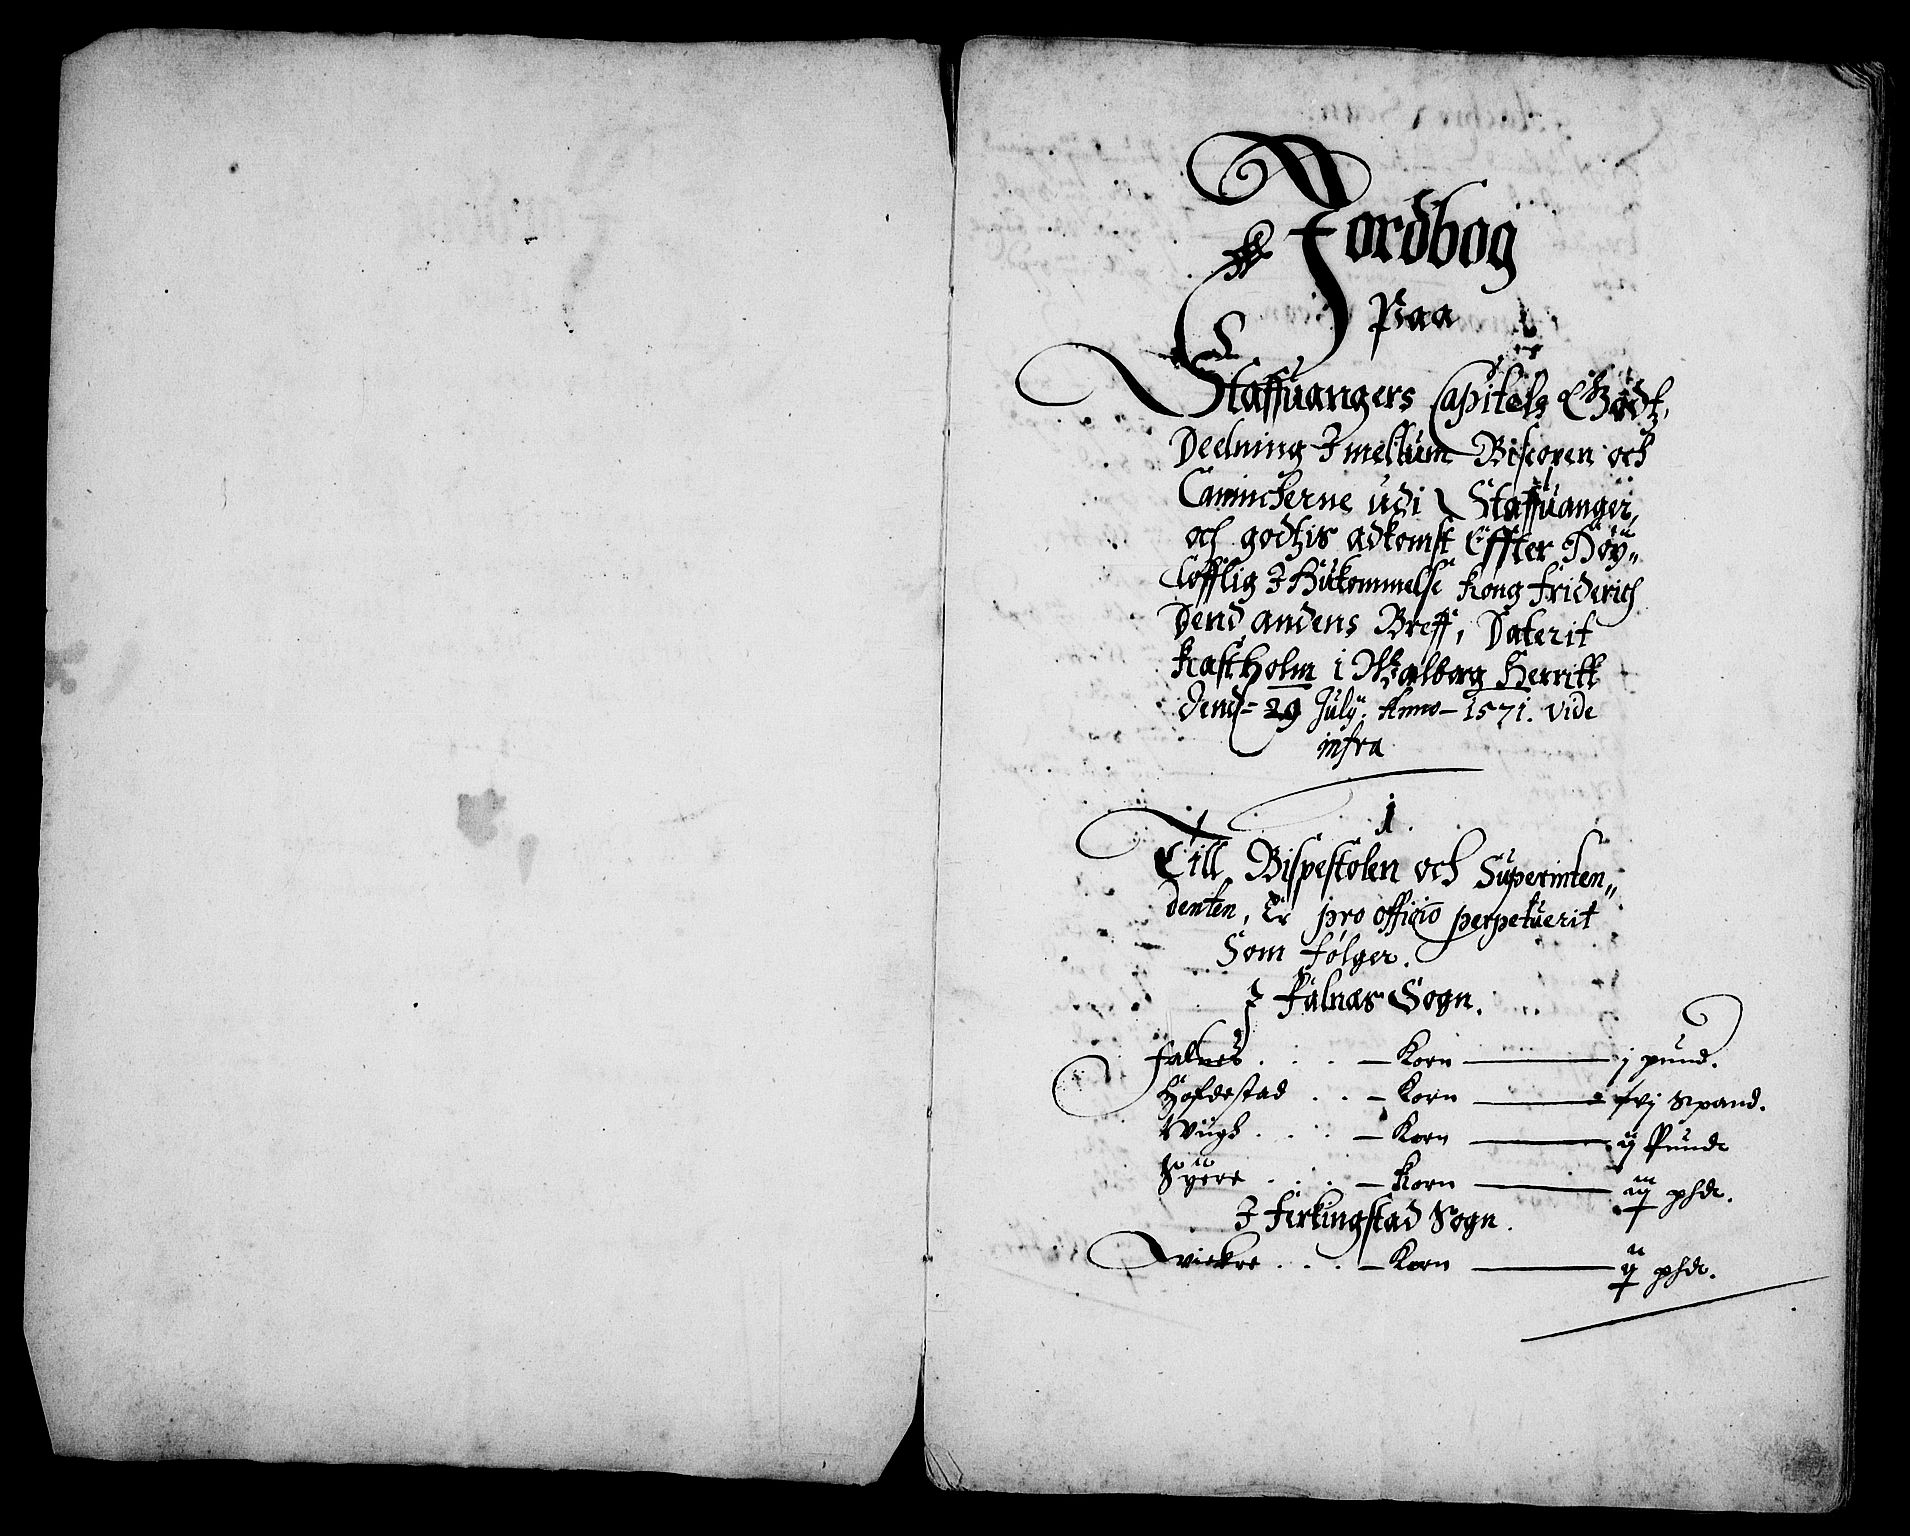 Jordbog
Paa
Staffuangers Capitels Godtz,
Deelning Imellum Biscopen och
Cannickerne udi Staffuanger,
och godtzis adkomst Effter Höy„
löfflig Ihukommelse Kong Friderich
Dend andens Breff, Daterit
Kastholm i Walborg Herritt
Dend 29 July. Anno 1571. vide
infra
1
Till Bispestolen och Superinten„
denten, Er pro officio perpetuerit
Som følger.
I Falnæs Sogn.
Falnes . . . – Korn — j pund.
Hofdestad . . – Korn — Spand.
Korn — ij Pund
Syere . . . – Korn — phd.
I Ferkingstad Sogn.
Korn — phd.